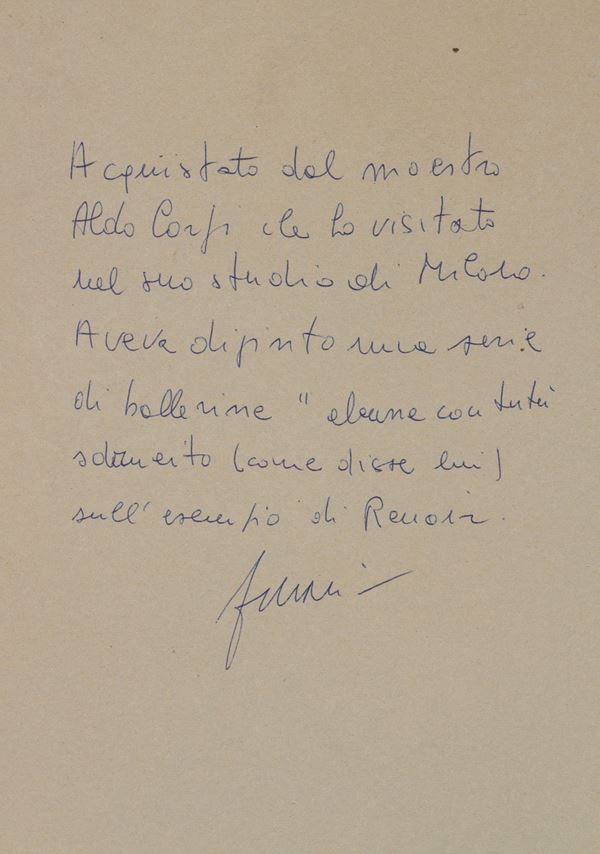 Acquistato dal maestro
Aldo Carpi che ho visitato
nel suo studio di Milano.
Aveva dipinto una serie
di ballerine " alcune con tutù
(come disse lui)
sull' esempio di Renoir.